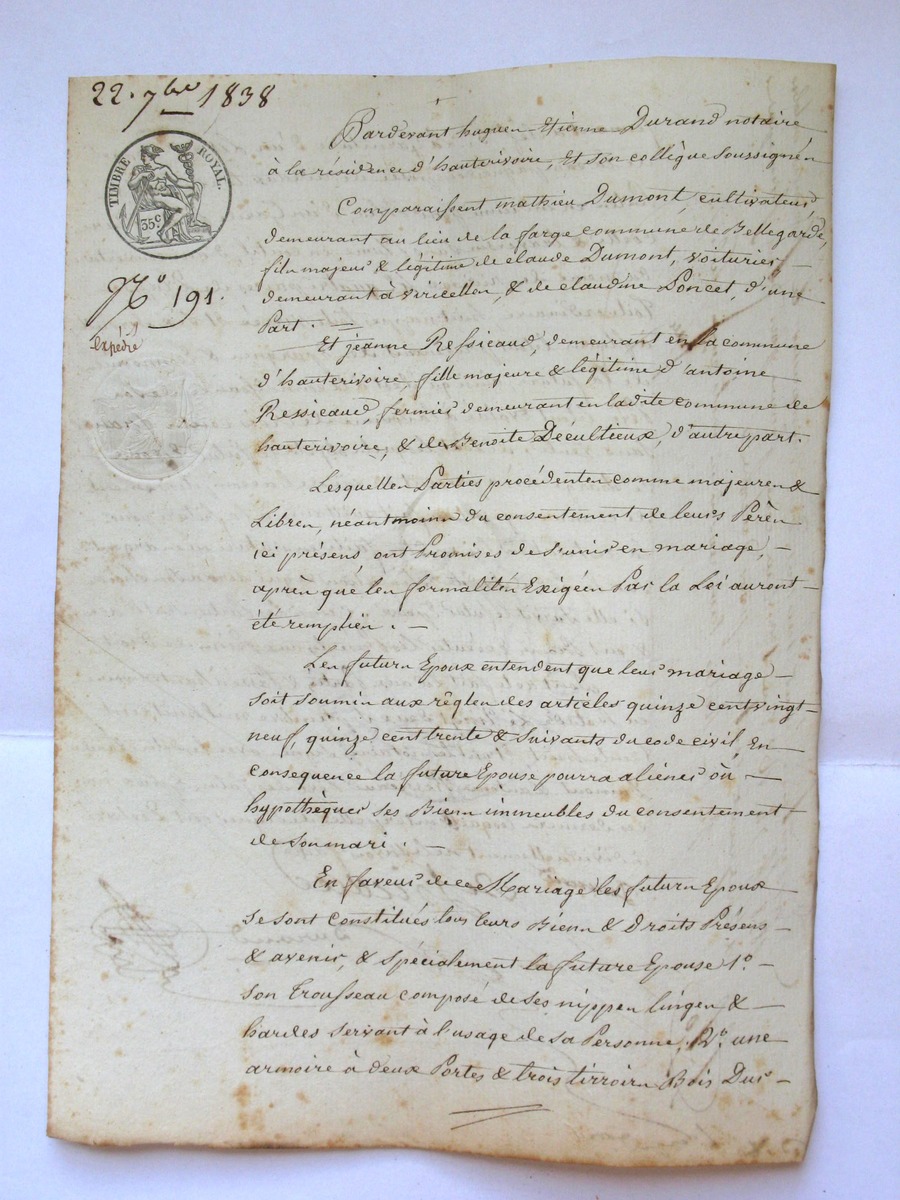 22. 7bre 1838
TIMBRE ROYAL.
35c
No 191.
Expédié
Pardevant hugues Etienne Durand notaire
à la résidence d'hauterivoire, et son collègue soussignés
Comparaissent mathieu Dumont, cultivateur,
demeurant au lieu de la farge commune de Bellegarde,
fils majeur & légitime de claude Dumont, voiturier
demeurant à viricelles, & de claudine Poncet, d'une
Part. —
Et jeanne Ressicaud, demeurant en la commune
d'hauterivoire, fille majeure & légitime d'antoine
Ressicaud, fermier demeurant en ladite commune de
hauterivoire, & de Benoite Décultieux, d'autre part.
Lesquelles Parties procédentes comme majeures &
Libres, néantmoins du consentement de leurs Pères
ici présens ont Promises de s'unir en mariage, —
après que les formalités Exigées Par la Loi auront
été remplies. —
Les futurs Epoux entendent que leur mariage —
soit soumis aux règles des articles quinze cent vingt-
neuf, quinze cent trente & suivants du code civil, En
consequence la future Epouse pourra aliéner où —
hypothèquer ses Biens immeubles du consentement
de son mari. —
En faveur de ce Mariage les futurs Epoux
se sont constitués tous leurs Biens & Droits Présens —
& avenir, & spécialement la future Epouse 1o. —
son Trousseau composé de ses nippes linges & —
hardes servant à l'usage de sa Personne, 2o. une
armoire à deux Portes & trois tirroirs Bois Dur —